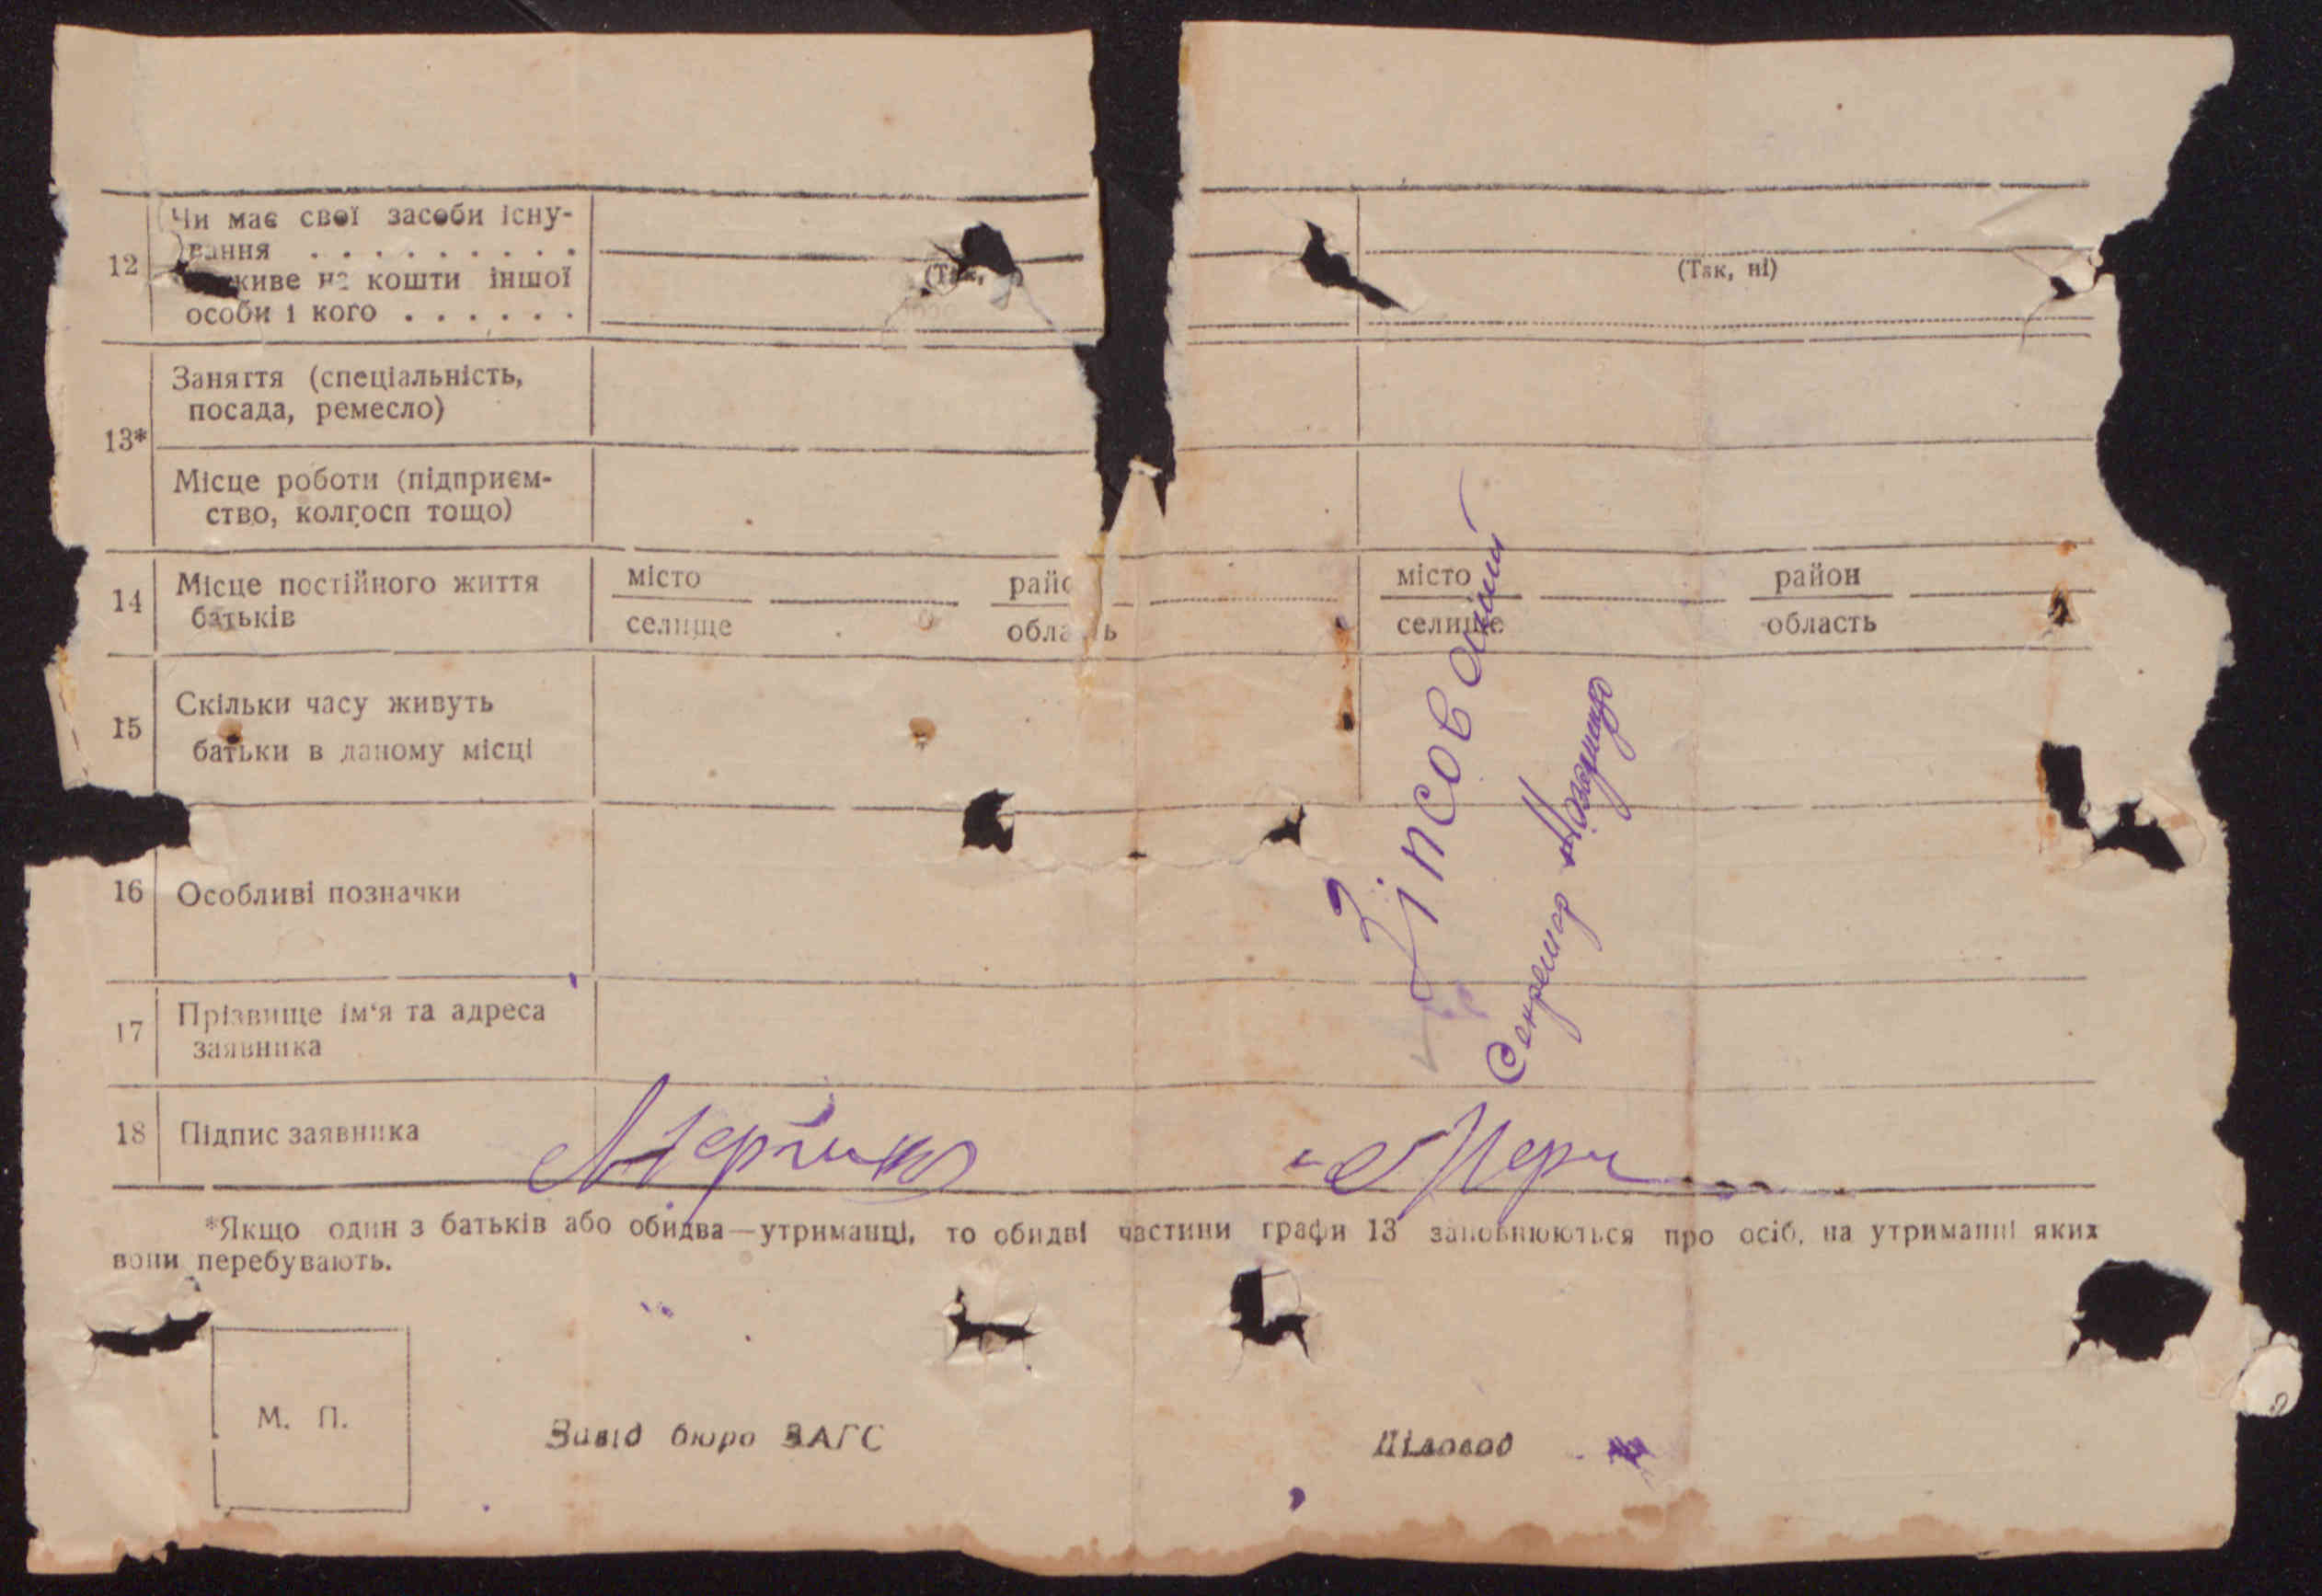 12 Чи має свої засоби існу-
вання . . . . . . . . .
живе на кошти іншої
особи і кого . . . . . .
(Так,
(Так, ні)
13* Заняття (спеціальність,
посада, ремесло)
Місце роботи (підприєм-
ство, колгосп тощо)
14 Місце постійного життя
батьків
місто
селище
район
область
місто
селище
район
область
15 Скільки часу живуть
батьки в даному місці
16 Особливі позначки
17 Прізвище ім‘я та адреса
заявника
18 Підпис заявника
Зіпсований
Секретар
*Якщо один з батьків або обидва—утриманці, то обидві частини графи 13 заповнюються про осіб, на утриманні яких
вони перебувають.
М. П.
Завід бюро ЗАГС
Діловод